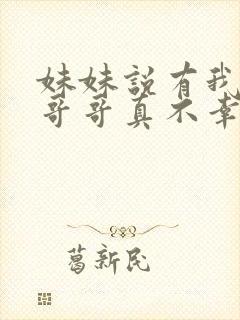 妹妹説有我
哥哥真不幸
葛新民